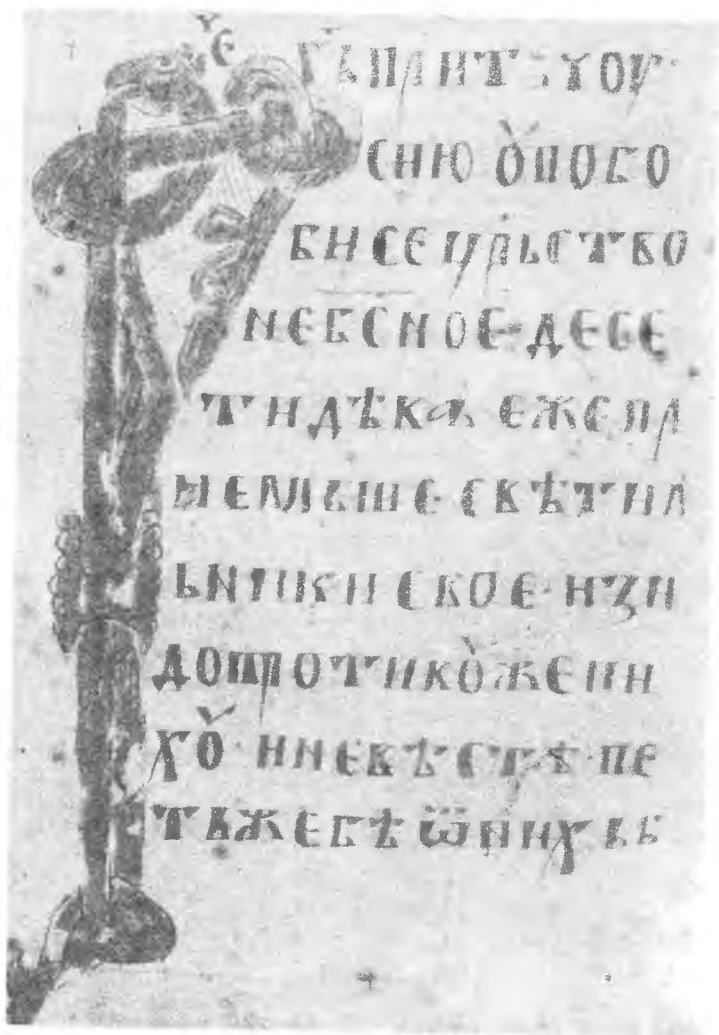 Рⷱе г҃ь прит:чоу·
сию ꙋподо
би се цр҃ьство
небсное· десе
ти дѣва еже пр
иемльше· свѣтил
ьники свое· изи
до противꙋ жени
хꙋ· и невѣстѣ· пе
ть же бѣ ѿ них ьб